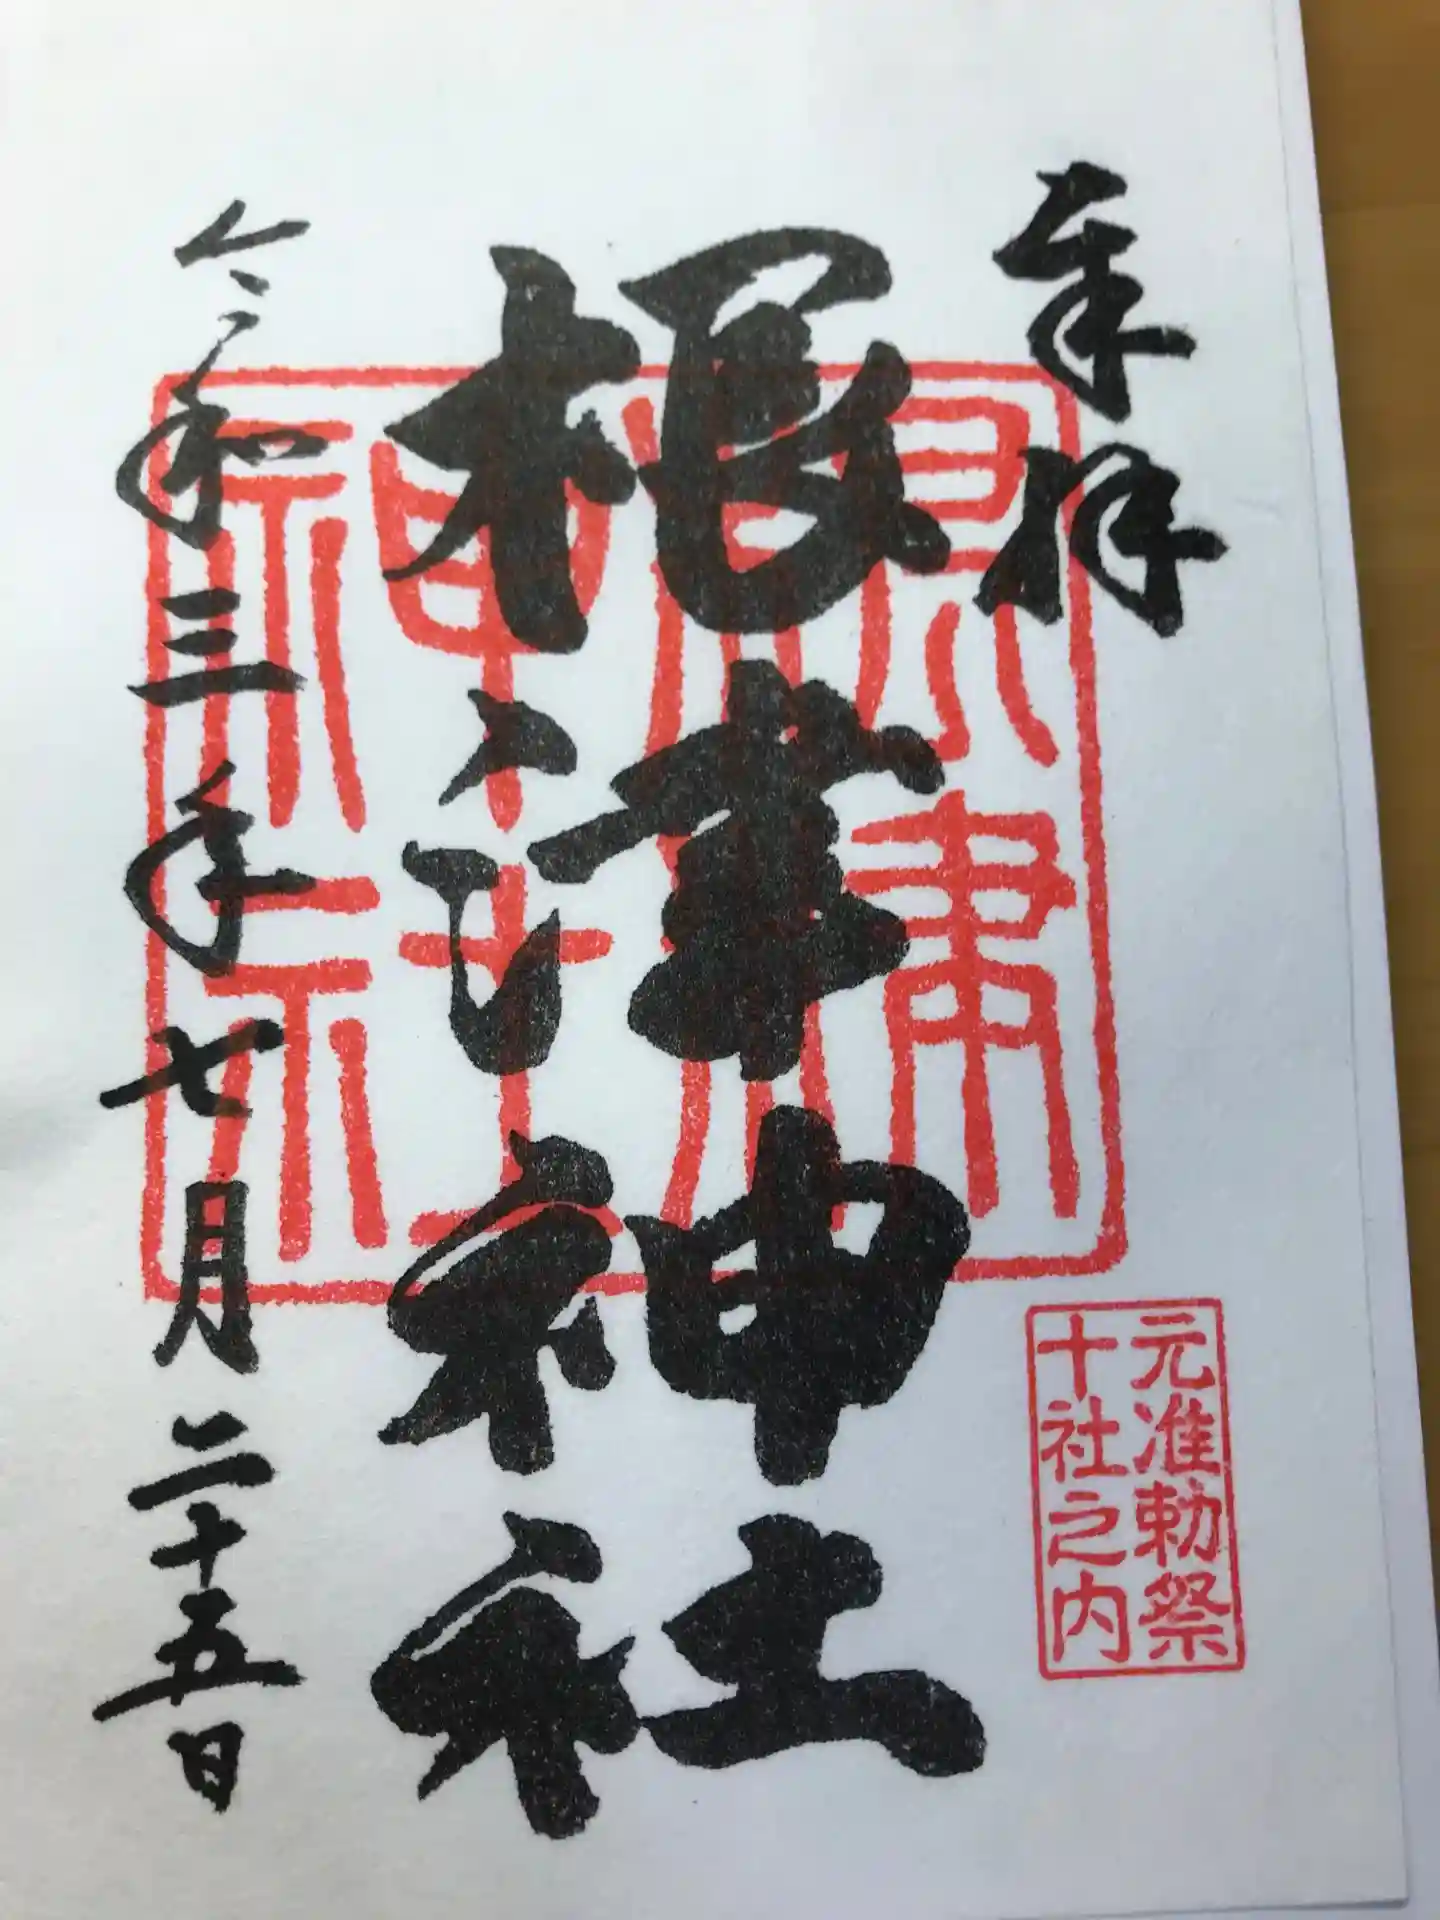 奉拝
元准勅祭
十社之内
根津神社
令和三年七月二十五日